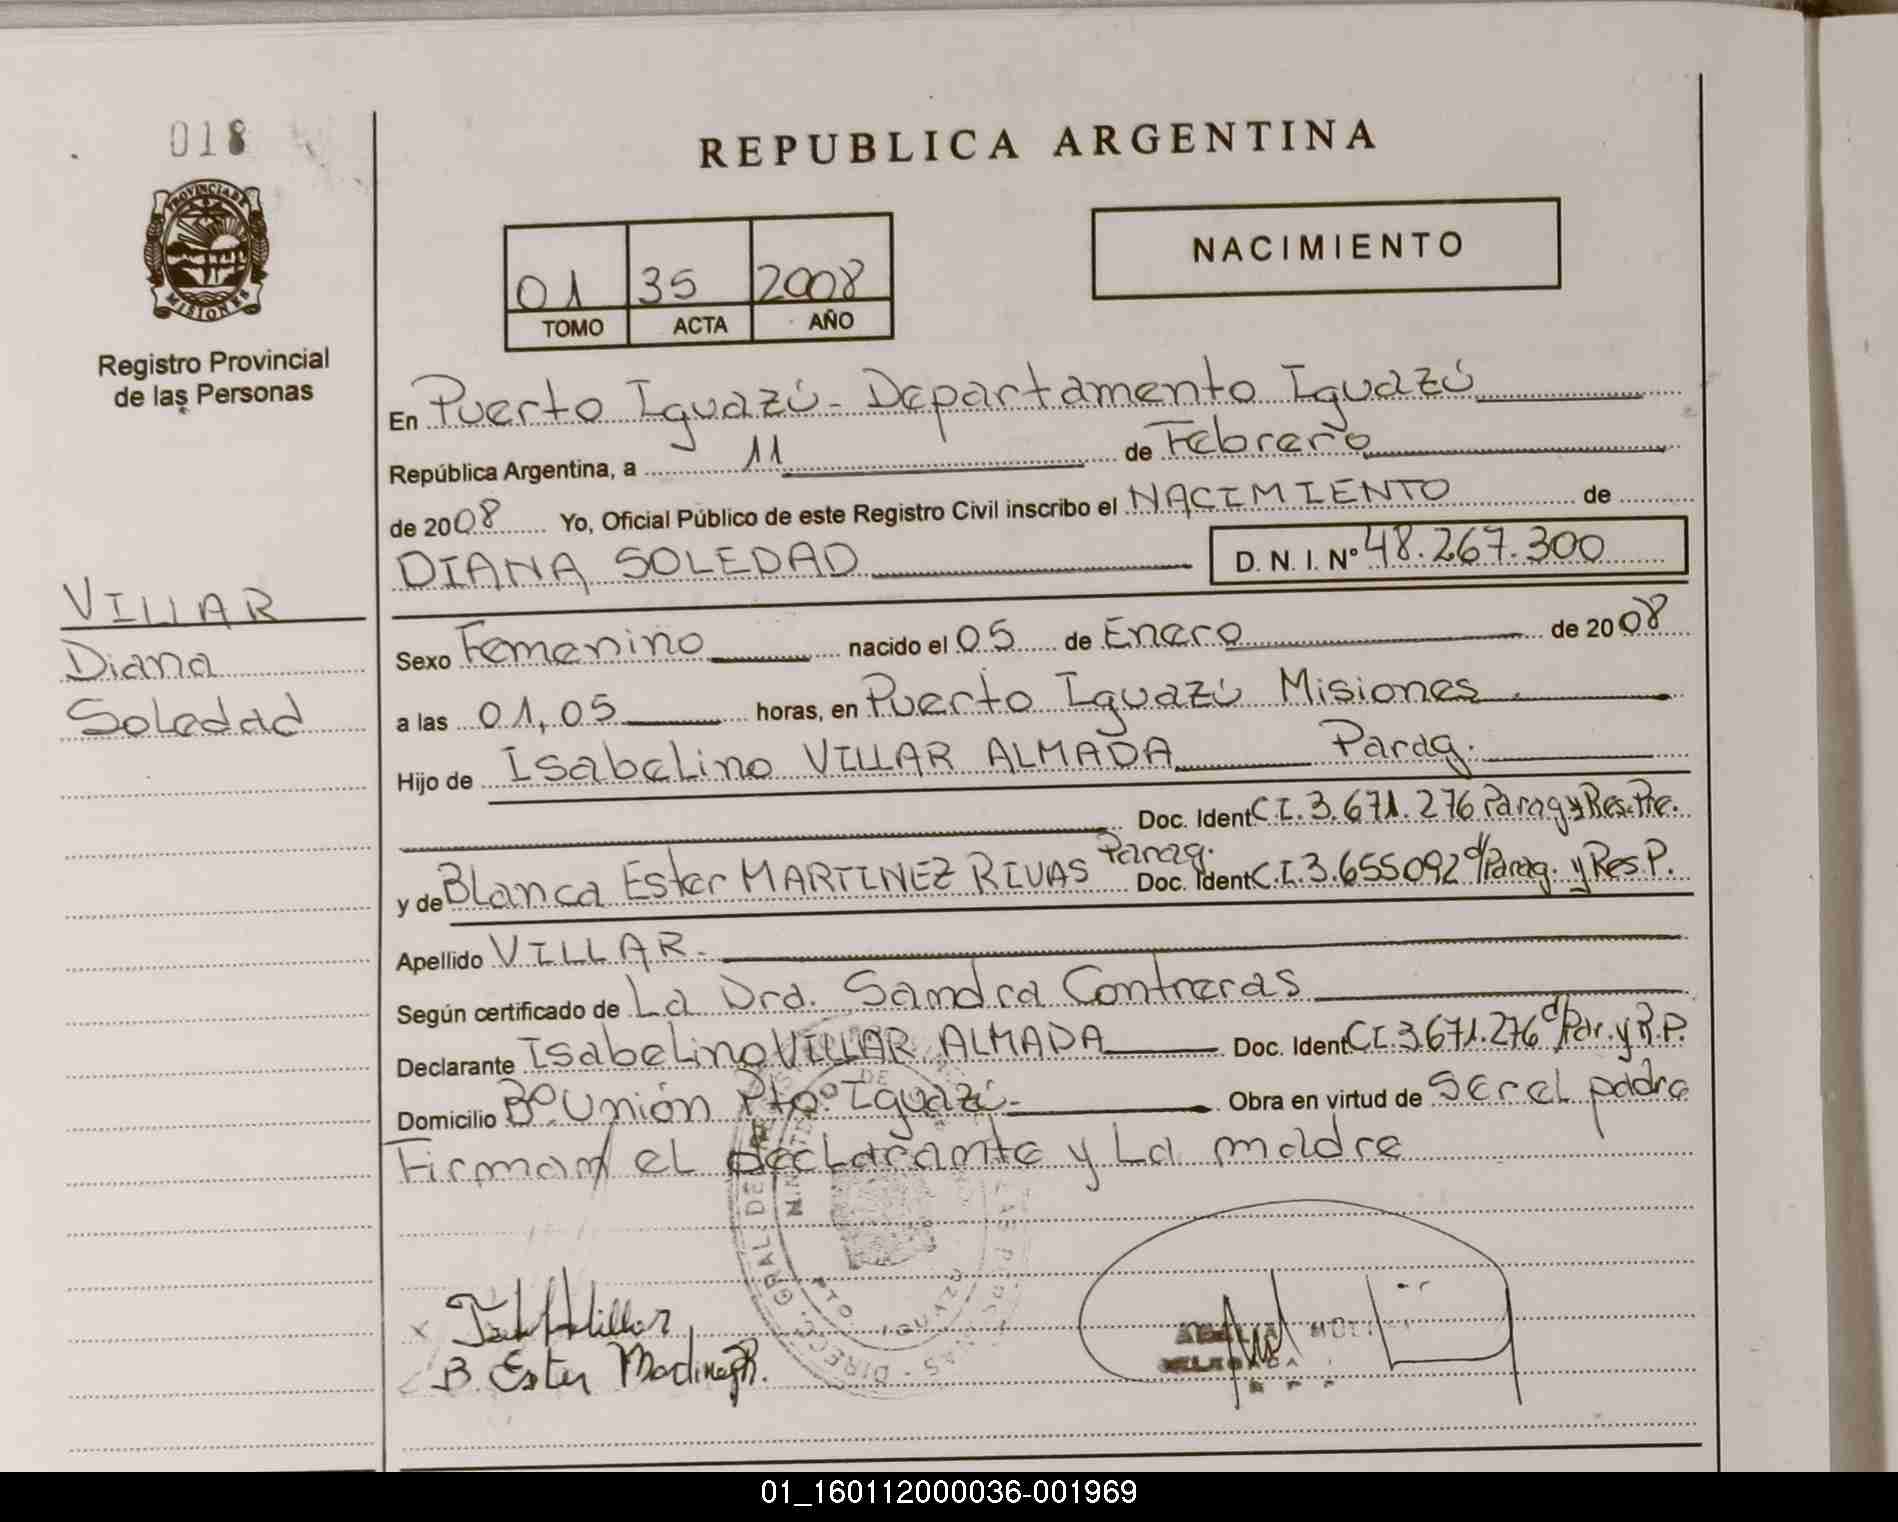 018
PROVINCIA DE
MISIONES
Registro Provincial
de las Personas
VILLAR
Diana
Soledad
REPUBLICA ARGENTINA
01 35 2008
TOMO ACTA AÑO
NACIMIENTO
En Puerto Iguazú - Departamento Iguazú
República Argentina, a 11 de Febrero
de 2008 Yo, Oficial Público de este Registro Civil inscribo el NACIMIENTO de
DIANA SOLEDAD D. N. I. Nº 48.267.300
Sexo Femenino nacido el 05 de Enero de 2008
a las 01,05 horas, en Puerto Iguazú Misiones
Hijo de Isabelino VILLAR ALMADA Parag.
Doc. Ident C.I. 3.671.276 Parag y Res. Pre.
y de Blanca Ester MARTINEZ RIVAS Parag. Doc. Ident C.I. 3.655092 d/Parag. y Res P.
Apellido VILLAR.
Según certificado de La Dra. Sandra Contreras
Declarante Isabelino VILLAR ALMADA Doc. Ident C.I. 3.671.276 d/Par. y R.P.
Domicilio Bº Unión Pto. Iguazú - Obra en virtud de Ser el padre
Firman el declarante y La madre
B. Ester
01_160112000036-001969